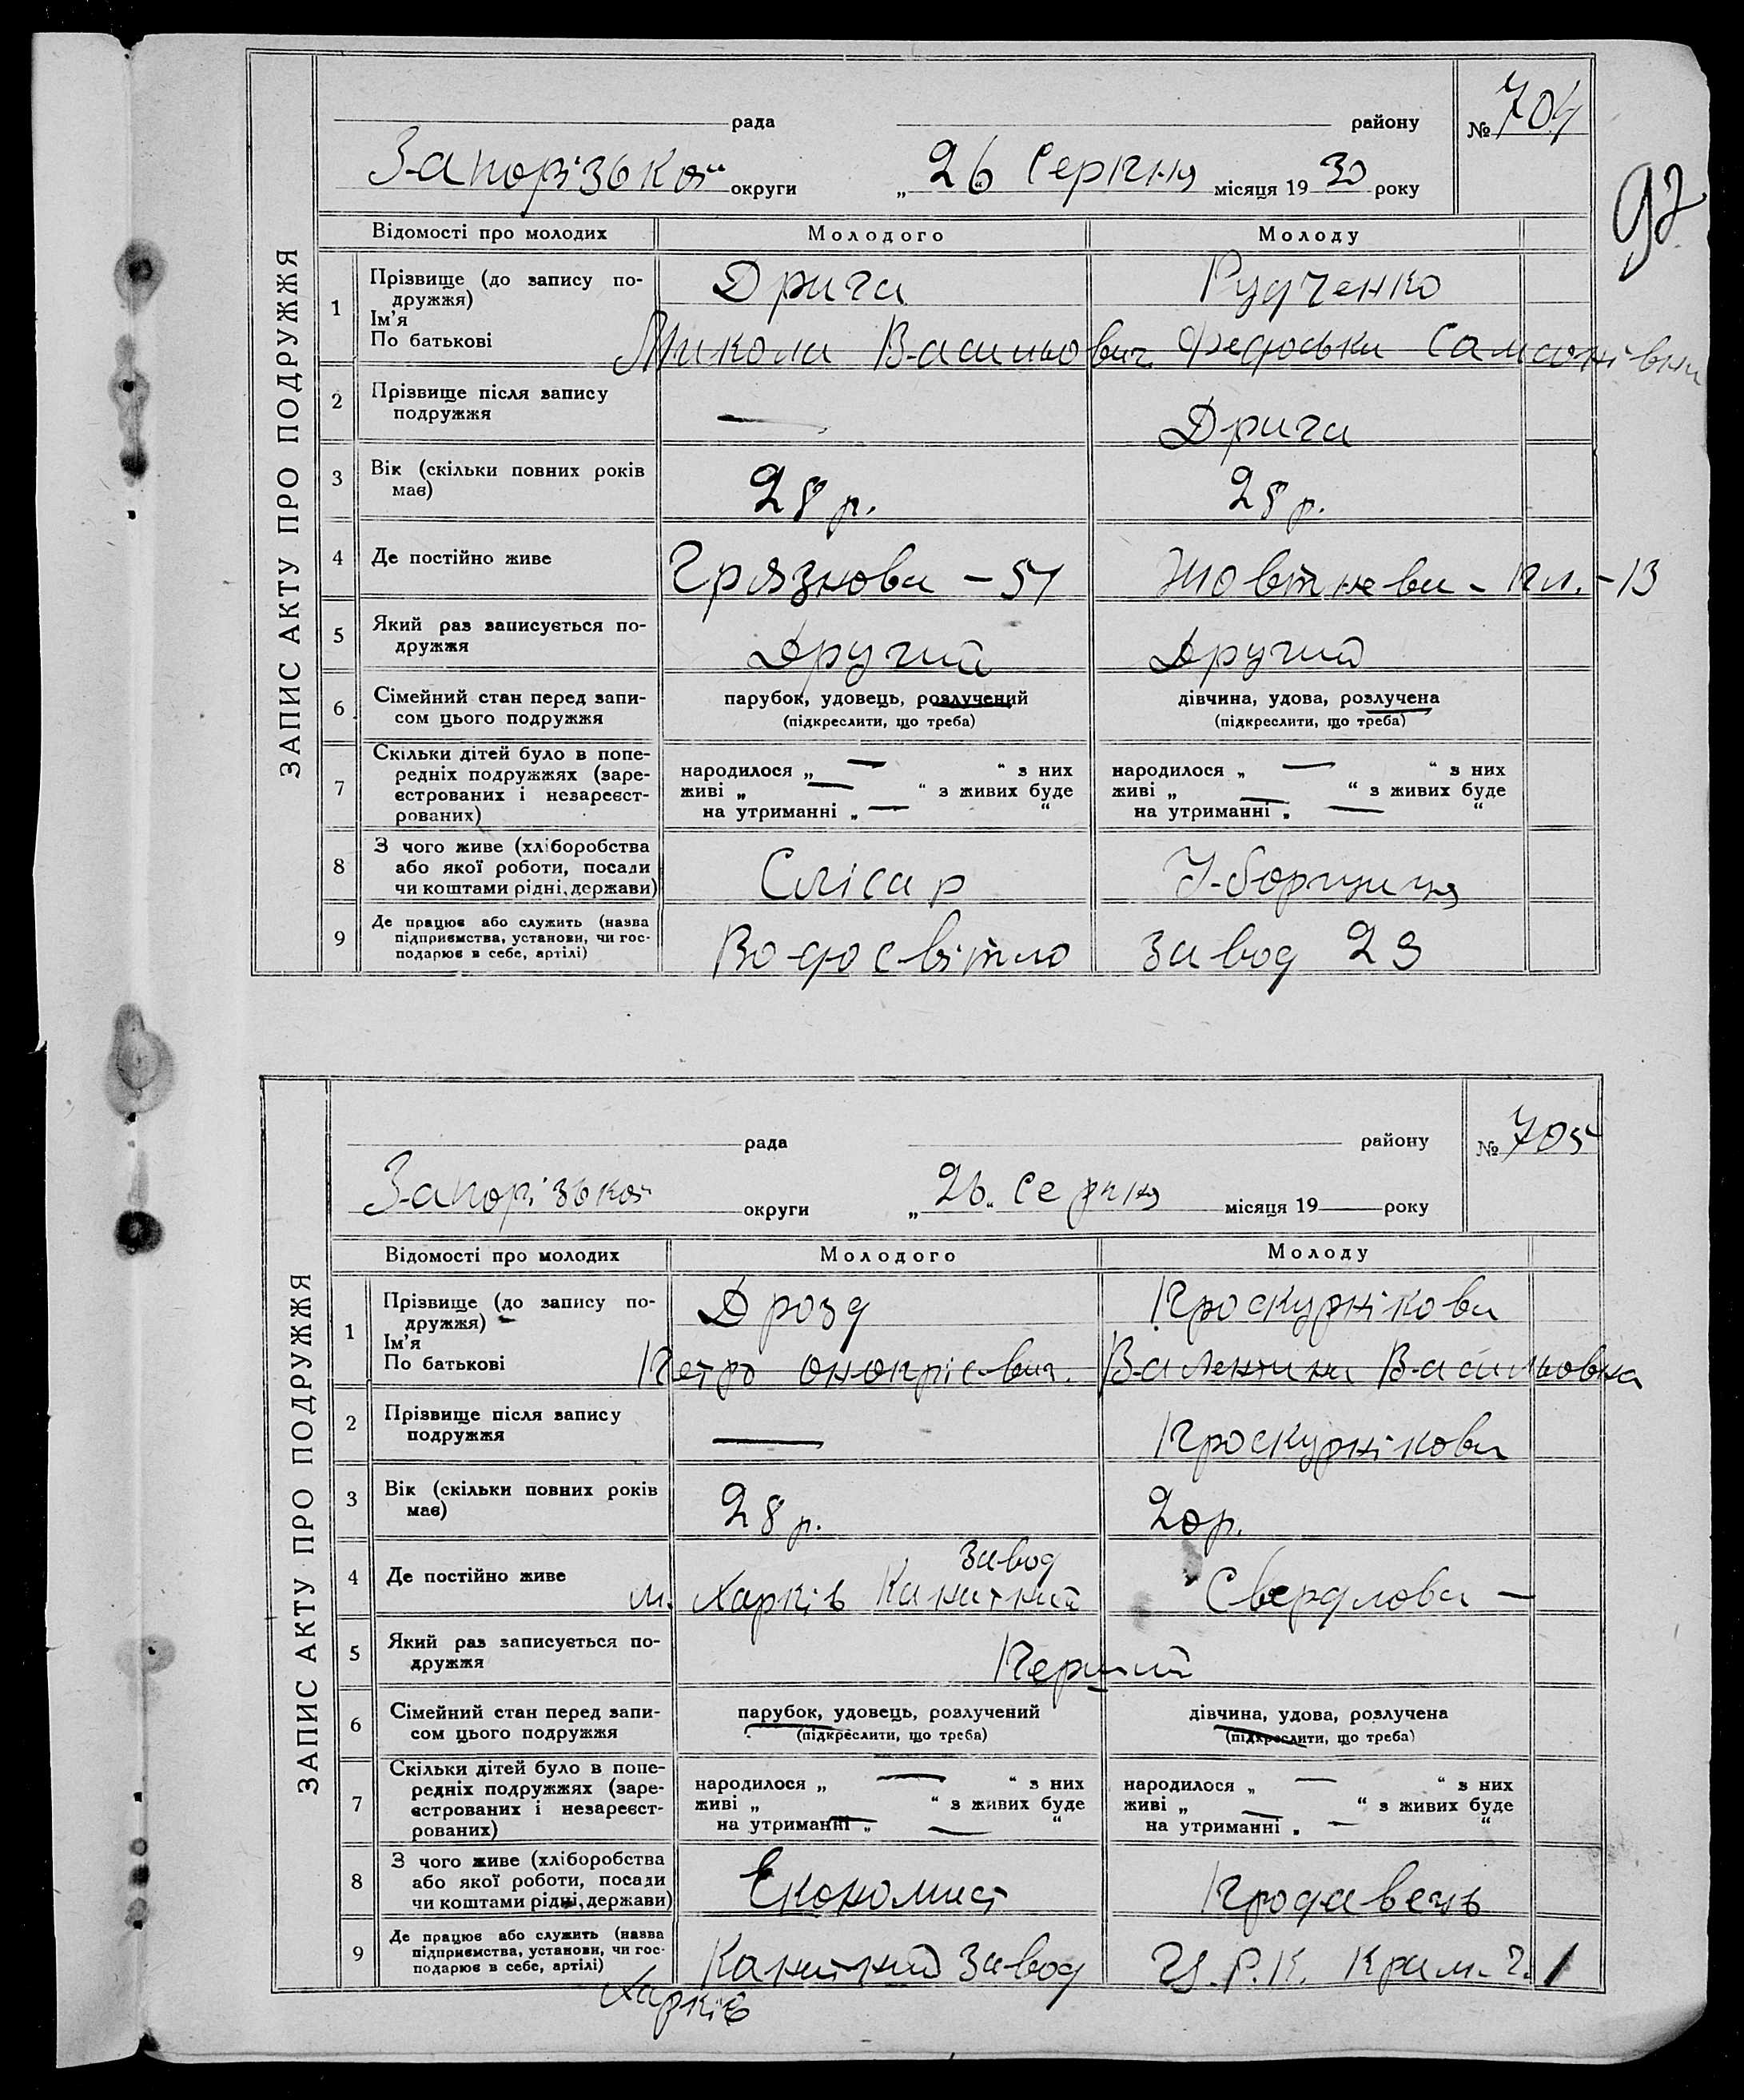 ЗАПИС АКТУ ПРО ПОДРУЖЖЯ
рада району № 704
Запорізької округи „26 Серпня місяця 1930 року
97
Відомості про молодих Молодого Молоду
1 Прізвище (до запису по-
дружжя) Дрига Рудченко
Ім'я
По батькові Микола Васильович Федоська Самсонівна
2 Прізвище після запису
подружжя — Дрига
3 Вік (скільки повних років
має) 28 р. 28 р.
4 Де постійно живе Грязнова - 51 Жовтнева - пл. - 13
5 Який раз записується по-
дружжя Другий Другий
6 Сімейний стан перед запи-
сом цього подружжя
парубок, удовець, розлучений дівчина, удова, розлучена
(підкреслити, що треба) (підкреслити, що треба)
7 Скільки дітей було в попе-
редніх подружжях (заре-
єстрованих і незареєст-
рованих)
народилося „ — “ з них народилося „ — “ з них
живі „ — “ з живих буде живі „ — “ з живих буде
на утриманні „ — “ на утриманні „ — “
8 З чого живе (хліборобства
або якої роботи, посади
чи коштами рідні, держави) Слісар Уборщиця
9 Де працює або служить (назва
підприємства, установи, чи гос-
подарює в себе, артілі) Водосвітло завод 29
ЗАПИС АКТУ ПРО ПОДРУЖЖЯ
рада району № 705
Запорізької округи „26„ серпня місяця 19— року
Відомості про молодих Молодого Молоду
1 Прізвище (до запису по-
дружжя) Дрозд Проскурнікова
Ім'я
По батькові Петро Онопрієвич. Валентина Васильовна
2 Прізвище після запису
подружжя — Проскурнікова
3 Вік (скільки повних років
має) 28 р. 20 р.
завод
4 Де постійно живе м. Харків Канатний Свердлова —
5 Який раз записується по-
дружжя Перший
6 Сімейний стан перед запи-
сом цього подружжя
парубок, удовець, розлучений дівчина, удова, розлучена
(підкреслити, що треба) (підкреслити, що треба)
7 Скільки дітей було в попе-
редніх подружжях (заре-
єстрованих і незареєст-
рованих)
народилося „ — “ з них народилося „ — “ з них
живі „ — “ з живих буде живі „ — “ з живих буде
на утриманні „ — “ на утриманні „ — “
8 З чого живе (хліборобства
або якої роботи, посади
чи коштами рідні, держави) Економист Продавець
9 Де працює або служить (назва
підприємства, установи, чи гос-
подарює в себе, артілі) Канатний завод Ц.Р.К. Крам. ч. 1
Харків